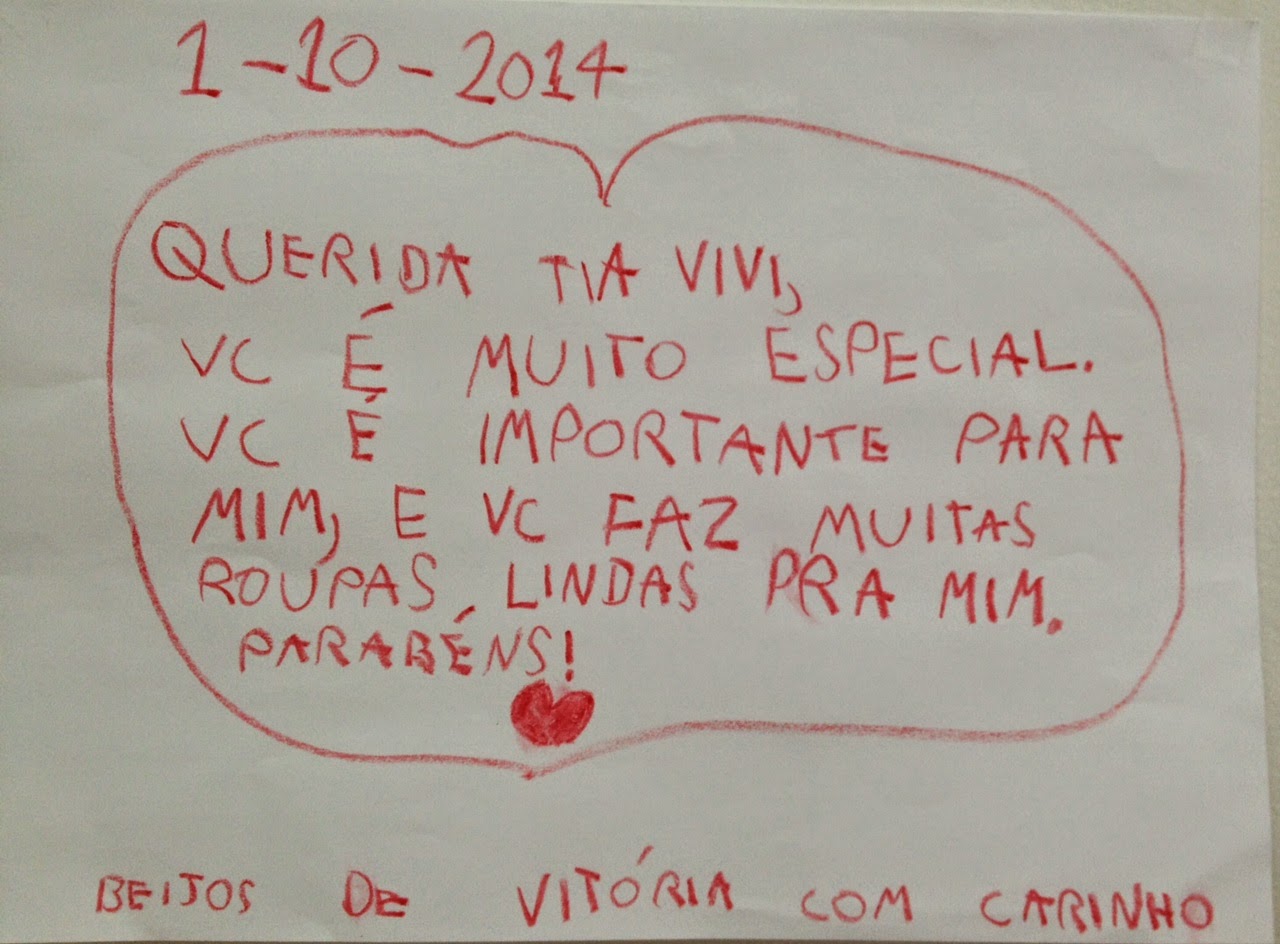 1-10-2014
QUERIDA TIA VIVI,
VC É MUITO ESPECIAL.
VC É IMPORTANTE PARA
MIM, E VC FAZ MUITAS
ROUPAS LINDAS PRA MIM.
PARABÉNS!
BEIJOS DE VITÓRIA COM CARINHO